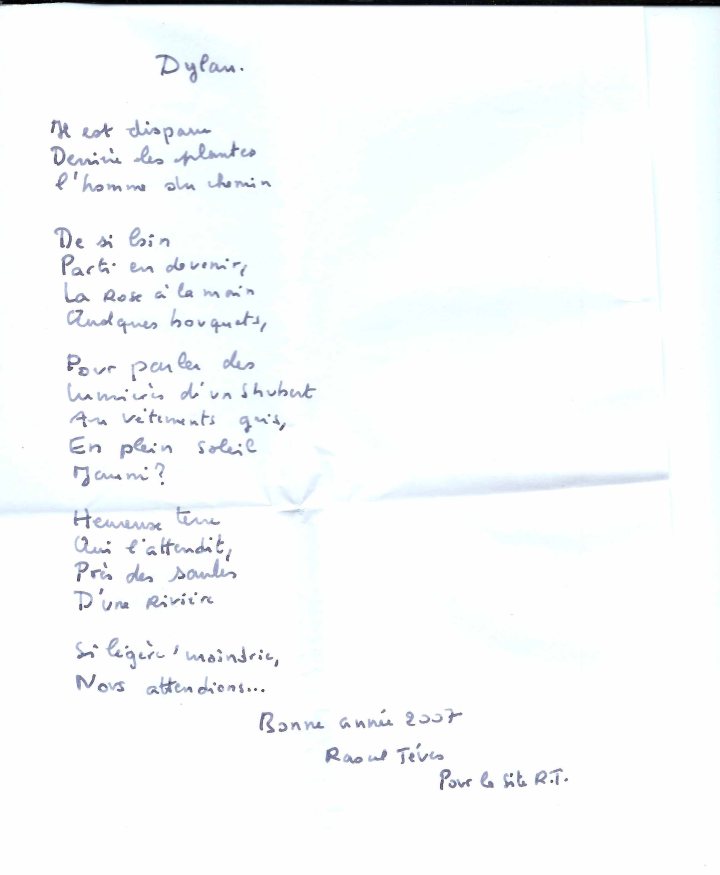 Dylan.
Il est disparu
Derrière les plantes
l'homme du chemin
De si loin
Parti en devenir,
La Rose à la main
Quelques bouquets,
Pour parler des
lumières d'un Shubert
Au vêtements gris,
En plein soleil
Jauni?
Heureuse terre
Qui l'attendit,
Près des saules
D'une Rivière
Si légère
Nous attendions...
Bonne année 2007
Raoul
Pour le site R.T.